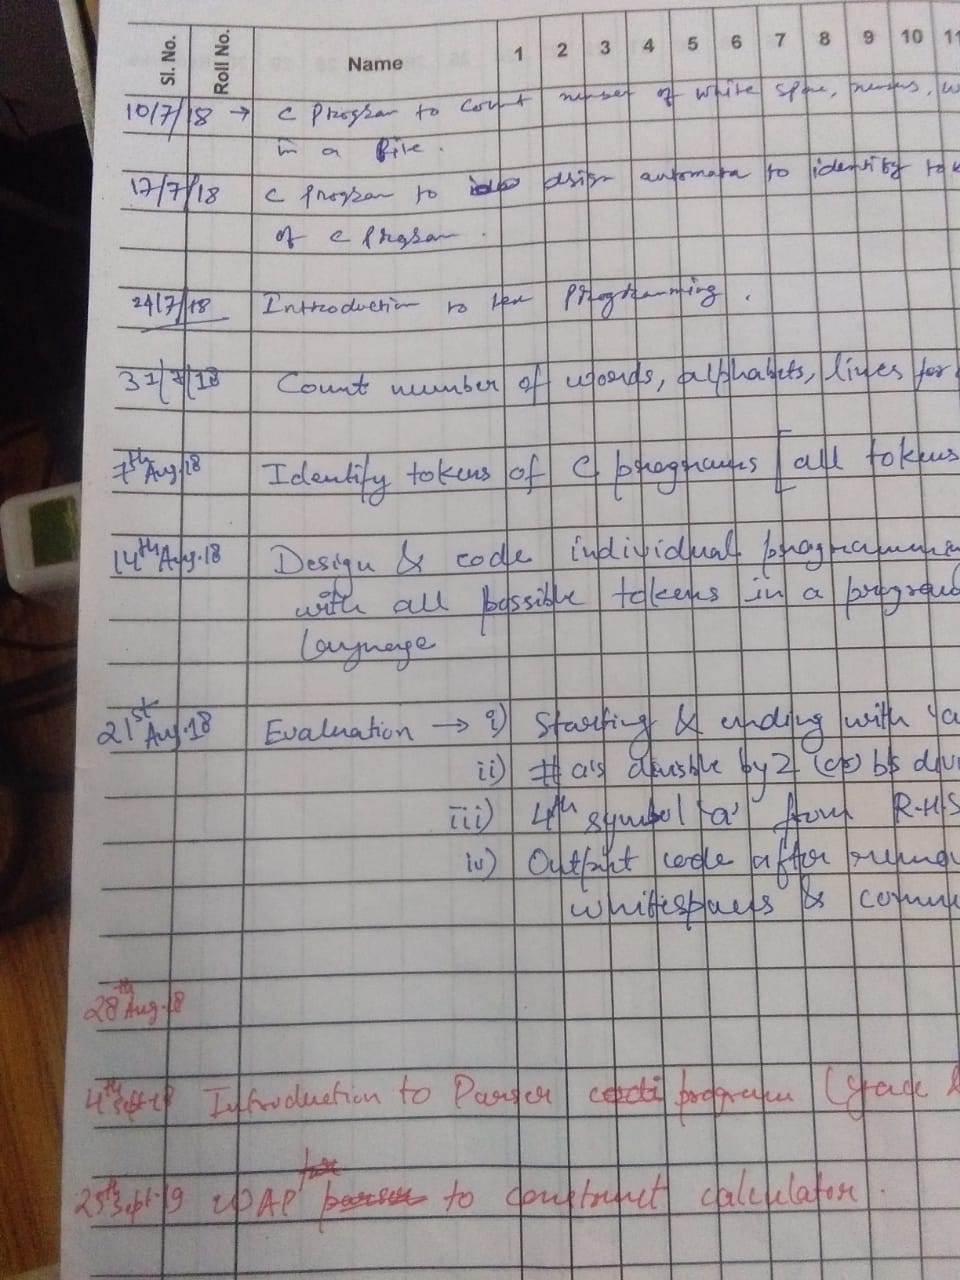 Sl. No. Roll No. Name 1 2 3 4 5 6 7 8 9 10 11
10/7/18 → C Program to count number of white space,
in a file.
17/7/18 C program to design automata to identify
of C Program.
24/7/18 Introduction to Lex Programming.
31/7/18 Count number of words, alphabets, lines for
7th Aug.18 Identify tokens of C programs [all tokens
14th Aug.18 Design & code individual
with all possible tokens in a
language
21st Aug.18 Evaluation → i) Starting & ending with
ii) # a's divisible by 2 (or) b's
iii) 4th symbol 'a' from R.H.S
iv) Output code after
whitespaces &
28th Aug.18
4th Sept-18 Introduction to Parser program (
25th Sept-19 WAP to construct calculator.